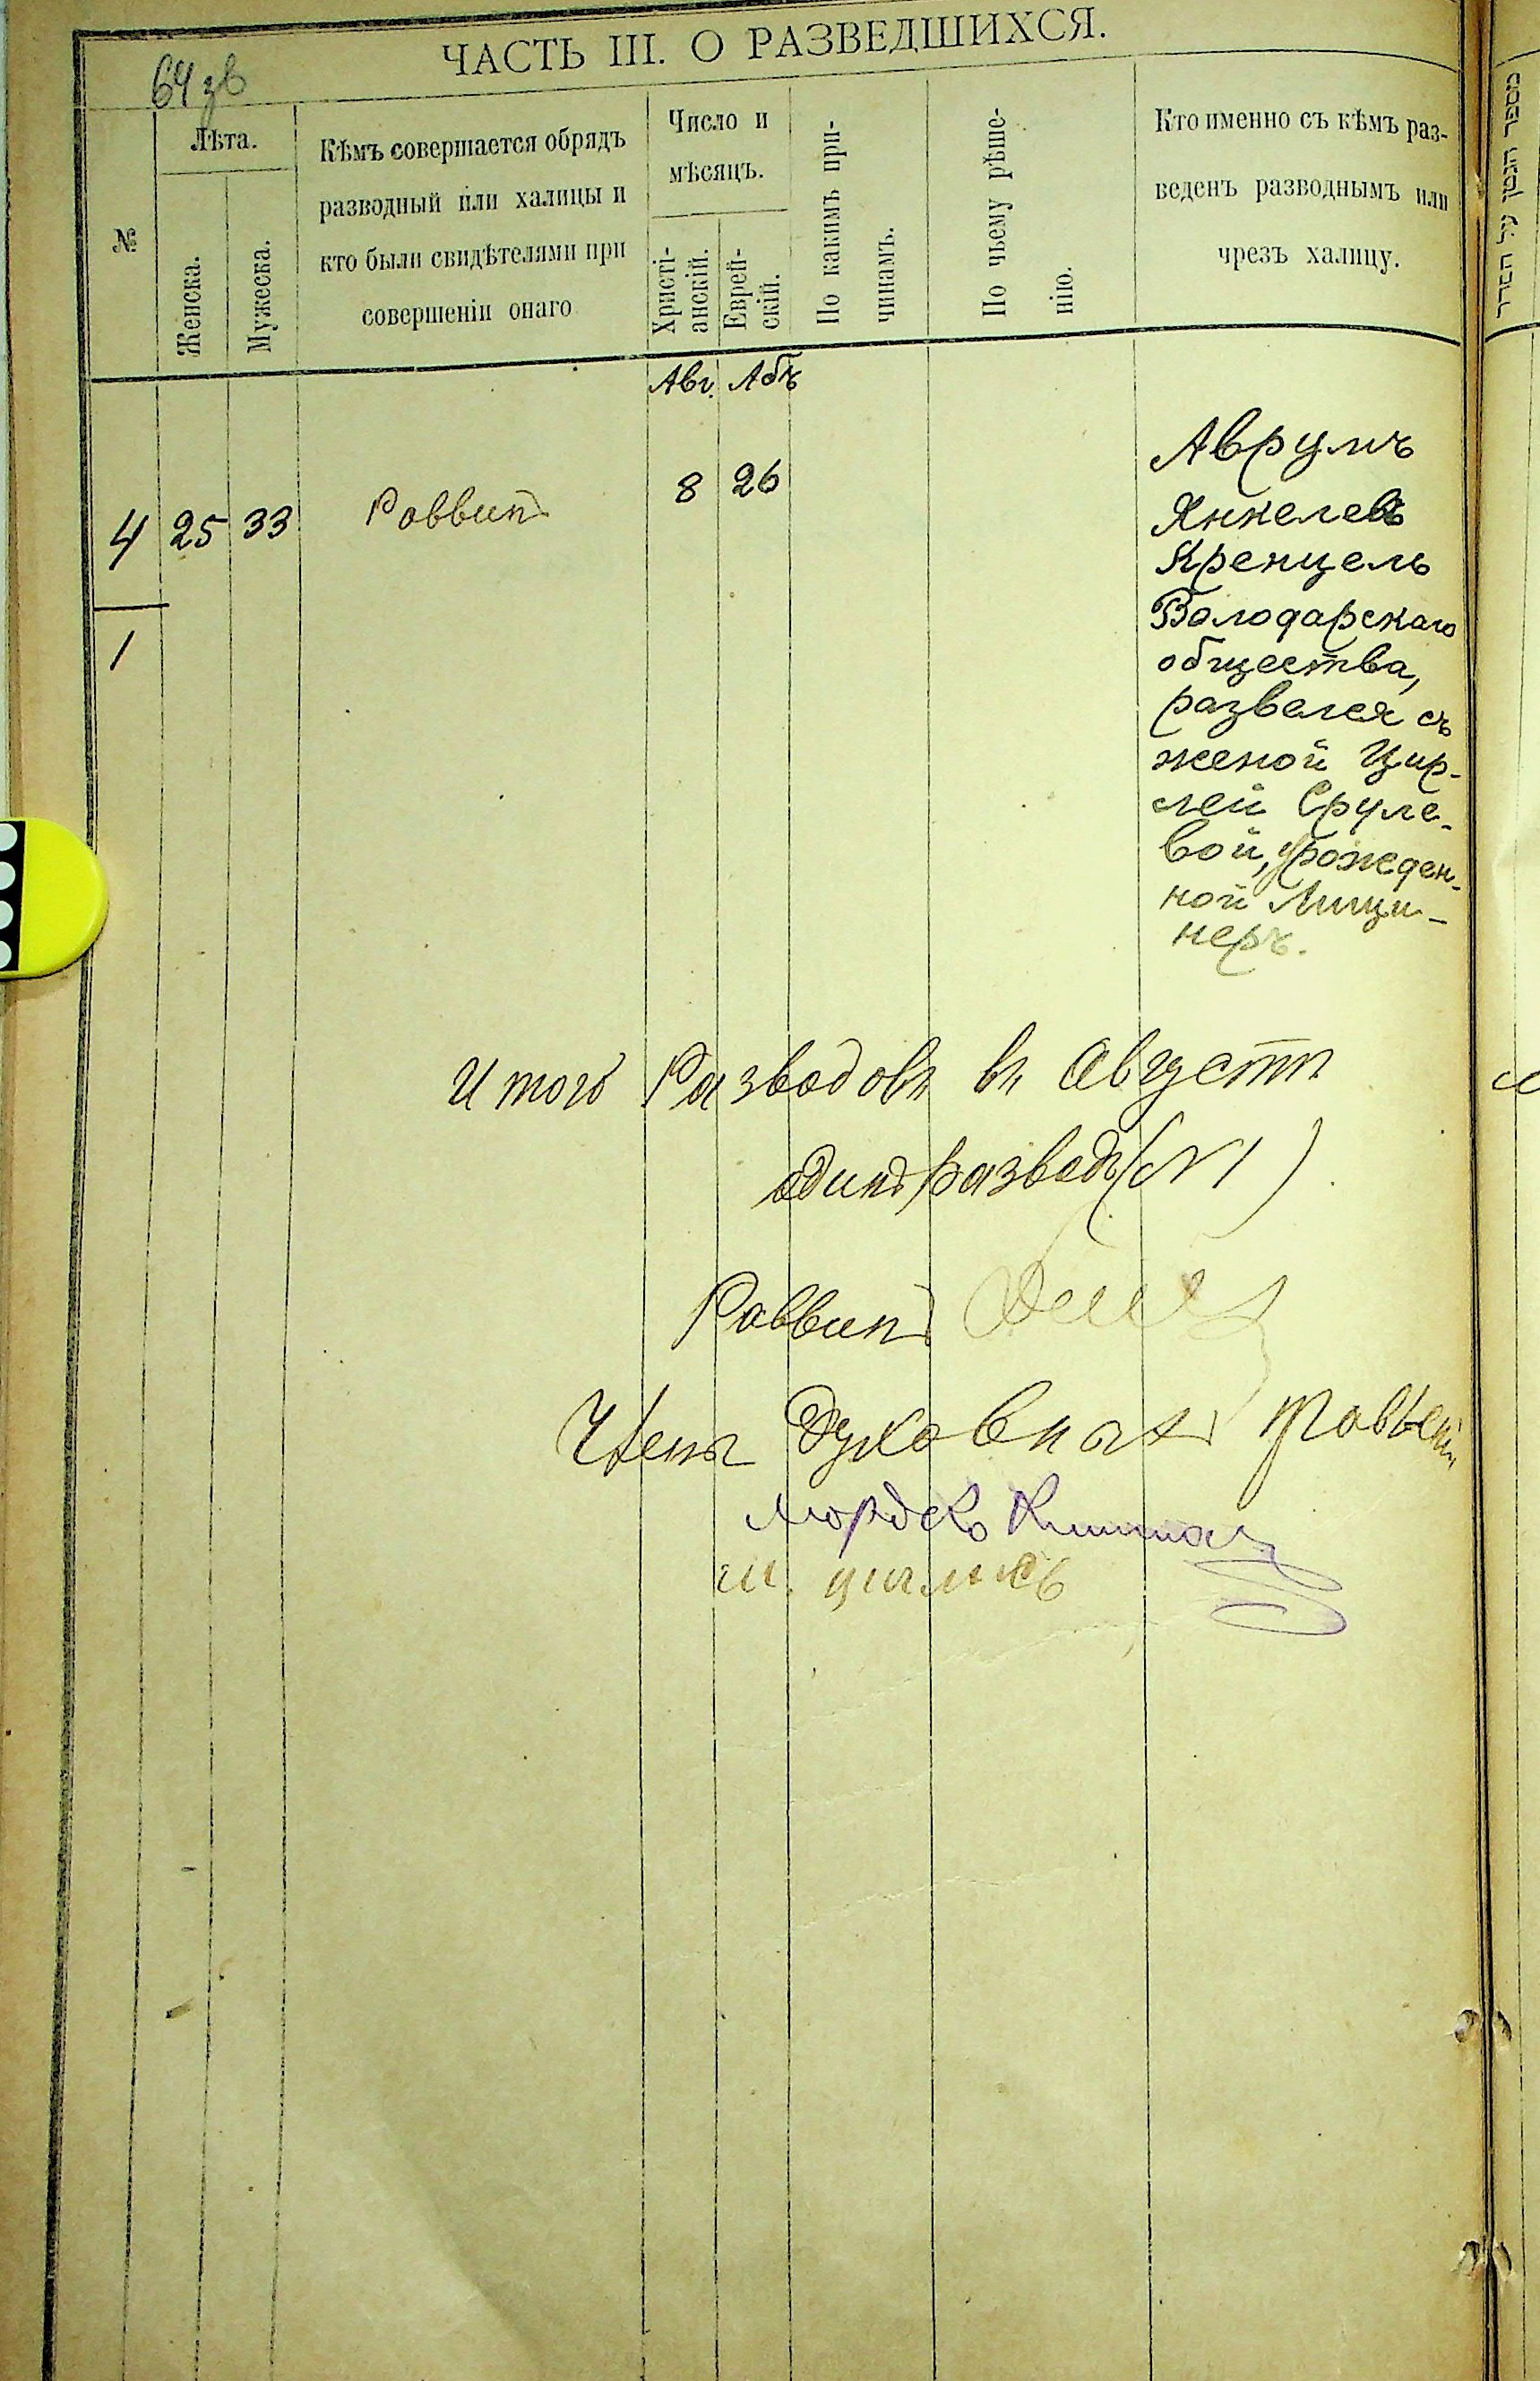 ЧАСТЬ III. О РАЗВЕДШИХСЯ.
64 зв
№
Лѣта.
Женска.
Мужеска.
Кѣмъ совершается обрядъ
разводный или халицы и
кто были свидѣтелями при
совершеніи онаго
Число и
мѣсяцъ.
Христі-
анскій.
Еврей-
скій.
По какимъ при-
чинамъ.
По чьему рѣше-
нію.
Кто именно съ кѣмъ раз-
веденъ разводнымъ или
чрезъ халицу.
מספר הגטן על הסדר
Авг. Абъ
4 25 33 Раввинъ 8 26
1
Аврумъ
Янкелевъ
Кренцель
Володарскаго
общества,
развелся съ
женой Цир-
лей Сруле-
вой, урожден-
ной Лищи-
неръ.
Итого Разводовъ въ Августѣ
одинъ разводъ (№ 1)
Раввинъ
Члены Духовнаго
Мордко